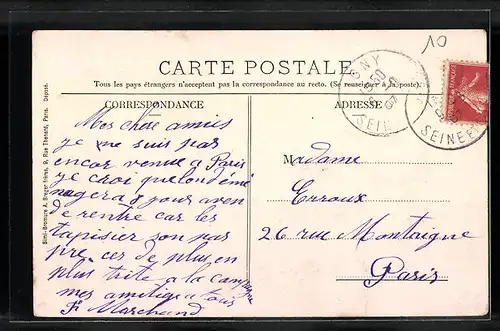 10
CARTE POSTALE
Tous les pays étrangers n'acceptent pas la correspondance au recto. (Se renseigner à la poste).
CORRESPONDANCE
ADRESSE
Mes chère amies
je me suis pas
encor venue a Paris
je croi que londémé
nagera 
de rentre car les
tapisier son pas
pre ces de plus en
plus trite a la cam
pagne
mes amitiés a tous
F. Marchand
Madame
Erroux
26 rue Montaigne
Paris
Simi-Bromure A. Breger frères, 9, Rue Thenard, Paris. Déposé.
SEINE